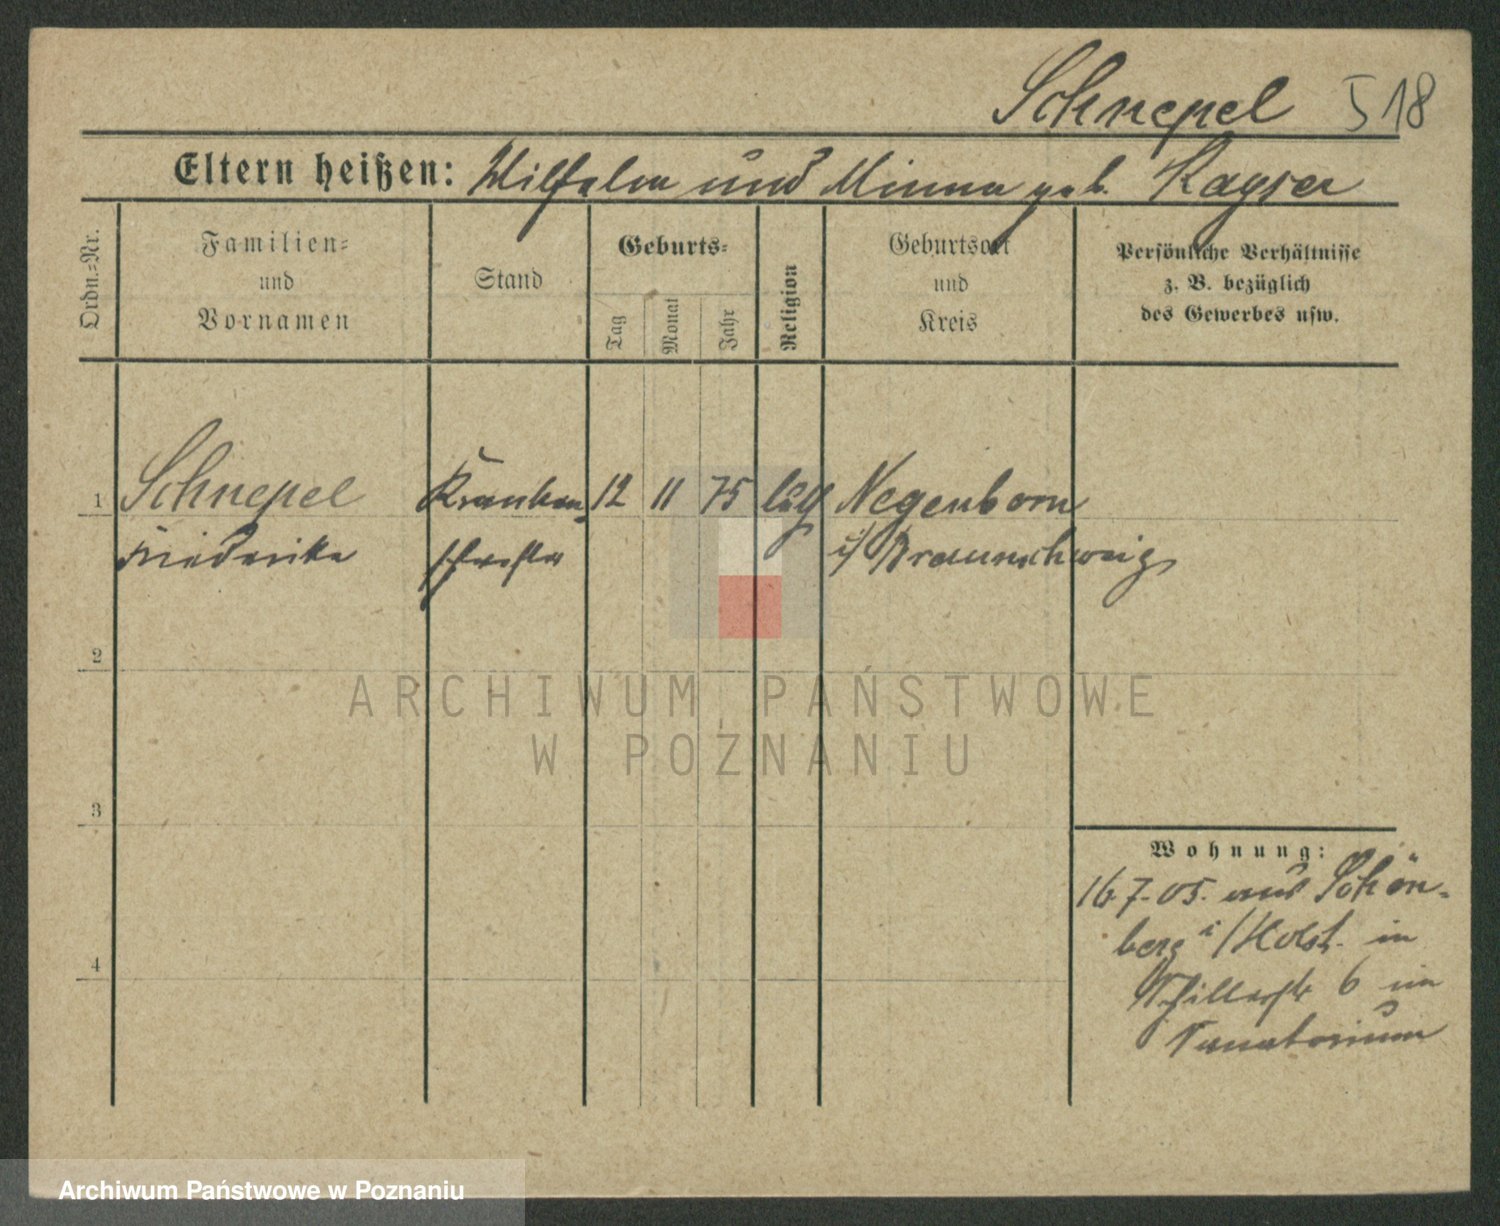 Schnepel 518
Eltern heißen: Wilhelm und Minna geb. Kayser
Ordn.-Nr.
Familien-
und
Vornamen
Stand
Geburts-
Tag
Monat
Jahr
Religion
Geburtsort
und
Kreis
Persönliche Verhältnisse
z. B. bezüglich
des Gewerbes usw.
1 Schnepel Kranken- 12 11 75 luth Negenborn
Friederike schwester i/ Braunschweig
2
3
4
Wohnung:
16.7.05. aus Schön-
berg i/Holst. in
Schillerstr 6 im
Sanatorium
ARCHIWUM PAŃSTWOWE
W POZNANIU
Archiwum Państwowe w Poznaniu